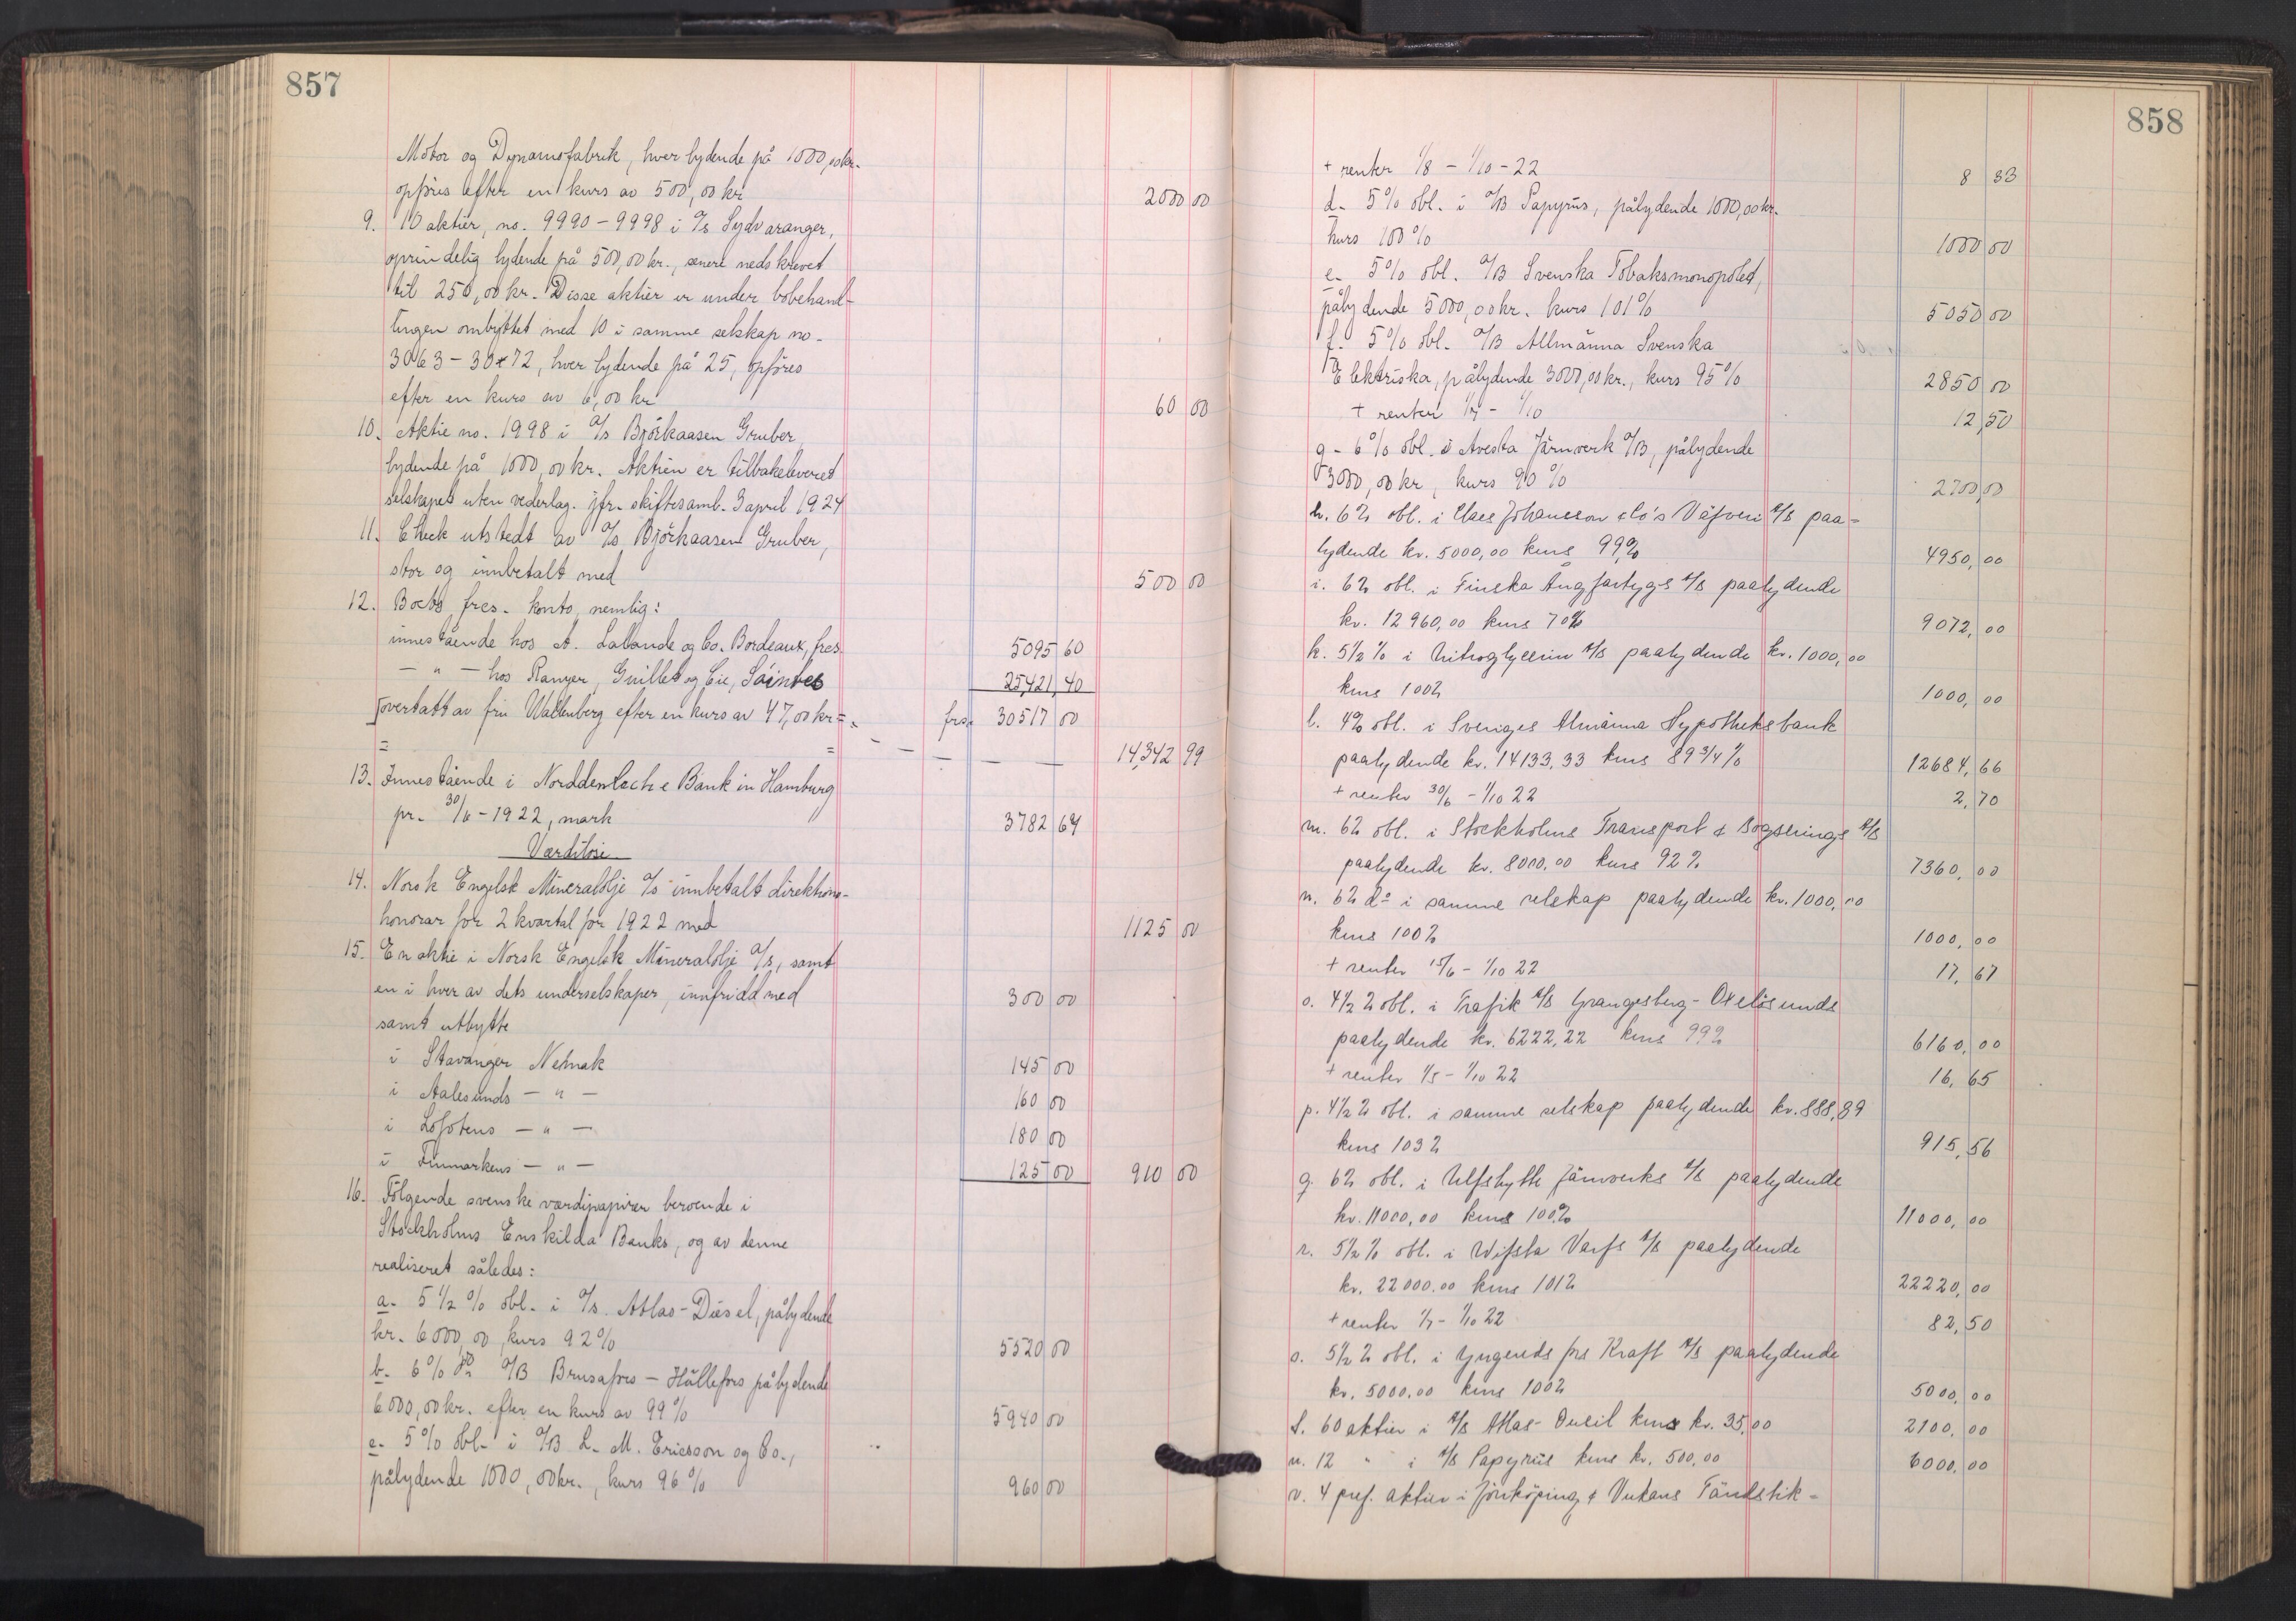 857
Motor og Dynamofabrik, hver lydende på 1000,00kr.
opføres efter en kurs av 500,00 kr 2000 00
9. 10 aktier, no. 9990-9998 i A/s Sydvaranger,
oprindelig lydende på 500,00 kr., senere nedskrevet
til 250,00 kr. Disse aktier er under bobehand-
lingen ombyttet med 10 i samme selskap no.
3063-3072, hver lydende på 25, opføres
efter en kurs av 6,00 kr 60 00
10. Aktie no. 1998 i A/s Björkaasen Gruber,
lydende på 1000,00 kr. Aktien er tilbakeleveret
selskapet uten vederlag. jfr. skiftesamt. 3 april 1924
11. Check utstedt av A/s Björkaasen Gruber,
stor og innbetalt med 500 00
12. Boets frcs. konto, nemlig:
innestående hos A. Lalande og Co. Bordeaux, frcs. 5095 60
— " — hos Ranyer, Guillet og Cie, Saintes 25,421,40
overtatt av fru Wallenberg efter en kurs av 47,00 kr = frs. 30517 00
= = — — — — — 14,342 99
13. Innestående i Norddeutsche Bank in Hamburg
pr. 30/6-1922, mark 3782 64
Værdiløse
14. Norsk Engelsk Mineralolje A/s innbetalt direktions-
honorar for 2 kvartal for 1922 med 1125 00
15. En aktie i Norsk Engelsk Mineralolje A/s, samt
en i hver av dets underselskaper, innfridd med 300 00
samt utbytte
i Stavanger Nemak 145 00
i Aalesunds — " — 160 00
i Lofotens — " — 180 00
i Finmarkens — " — 125 00 910 00
16. Følgende svenske værdipapirer beroende i
Stockholms Enskilda Banks, og av denne
realiseret således:
a. 5 1/2 % obl. i A/s. Atlas-Diesel, pålydende
kr. 6000,00, kurs 92% 5520 00
b. 6% do A/B Brusafors - Hällefors pålydende
6000,00 kr. efter en kurs av 99% 5940 00
c. 5% obl. i A/B L. M. Ericsson og Co.,
pålydende 1000,00kr., kurs 96% 960 00
858
+ renter 1/8 - 1/10 - 22 8 33
d. 5% obl. i A/B Papyrus, pålydende 1000,00 kr.
kurs 100% 1000 00
e. 5% obl. A/B Svenska Tobaksmonopolet,
pålydende 5000,00 kr. kurs 101% 5050 00
f. 5% obl. A/B Allmänna Svenska
Elektriska, pålydende 3000,00 kr., kurs 95% 2850 00
+ renter 1/9 - 1/10 12,50
g. 6% obl. i Avesta Järnverk A/B, pålydende
3000,00 kr, kurs 90% 2700,00
h. 6% obl. i Claes Johansson & Co's Väfveri A/B paa-
lydende kr. 5000,00 kurs 99% 4950,00
i. 6% obl. i Finska Ångfartygs A/B paalydende
kr. 12960,00 kurs 70% 9072,00
k. 5 1/2 % i Nitroglycerin A/B paalydende kr. 1000,00
kurs 100% 1000,00
l. 4% obl. i Sveriges Almänna Hypotheksbank
paalydende kr. 14133,33 kurs 89 3/4 % 12684,66
+ renter 30/6 - 1/10 22 2,70
m. 6% obl. i Stockholms Transport & Bogserings A/B
paalydende kr. 8000,00 kurs 92% 7360,00
n. 6% do i samme selskap paalydende kr. 1000,00
kurs 100% 1000,00
+ renter 15/6 - 1/10 22 17,67
o. 4 1/2 % obl. i Trafik A/B Grangesberg - Oxelösunds
paalydende kr. 6222,22 kurs 99% 6160,00
+ renter 1/5 - 1/10 22 16,65
p. 4 1/2 % obl. i samme selskap paalydende kr. 888,89
kurs 103% 915,56
q. 6% obl. i Ulfshytte Järnverks A/B paalydende
kr. 11000,00 kurs 100% 11000,00
r. 5 1/2 % obl. i Wifsta Varfs A/B paalydende
kr. 22000.00 kurs 101% 22220,00
+ renter 1/7 - 1/10 22 82,50
s. 5 1/2 % obl. i Yngereds frs Kraft A/B paalydende
kr. 5000.00 kurs 100% 5000,00
t. 60 aktier i A/B Atlas- kurs kr. 35,00 2100,00
u. 12 " i A/B Papyrus kurs kr. 500,00 6000,00
v. 4 pref. aktier i Jönköping & Vulcans Tändstik-